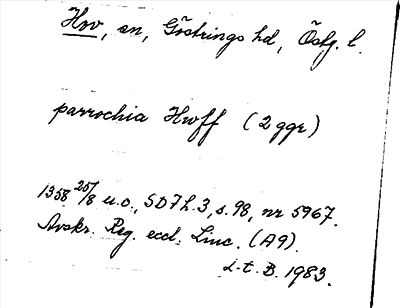 Hov, sn, Göstrings hd, Östg. l.
parrochia Hwff (2 ggr)
1358 25/8 u.o., SD7h.3, s. 98, nr 5967.
Avskr. Reg. eccl. Linc. (A9).
L.t. B. 1983.